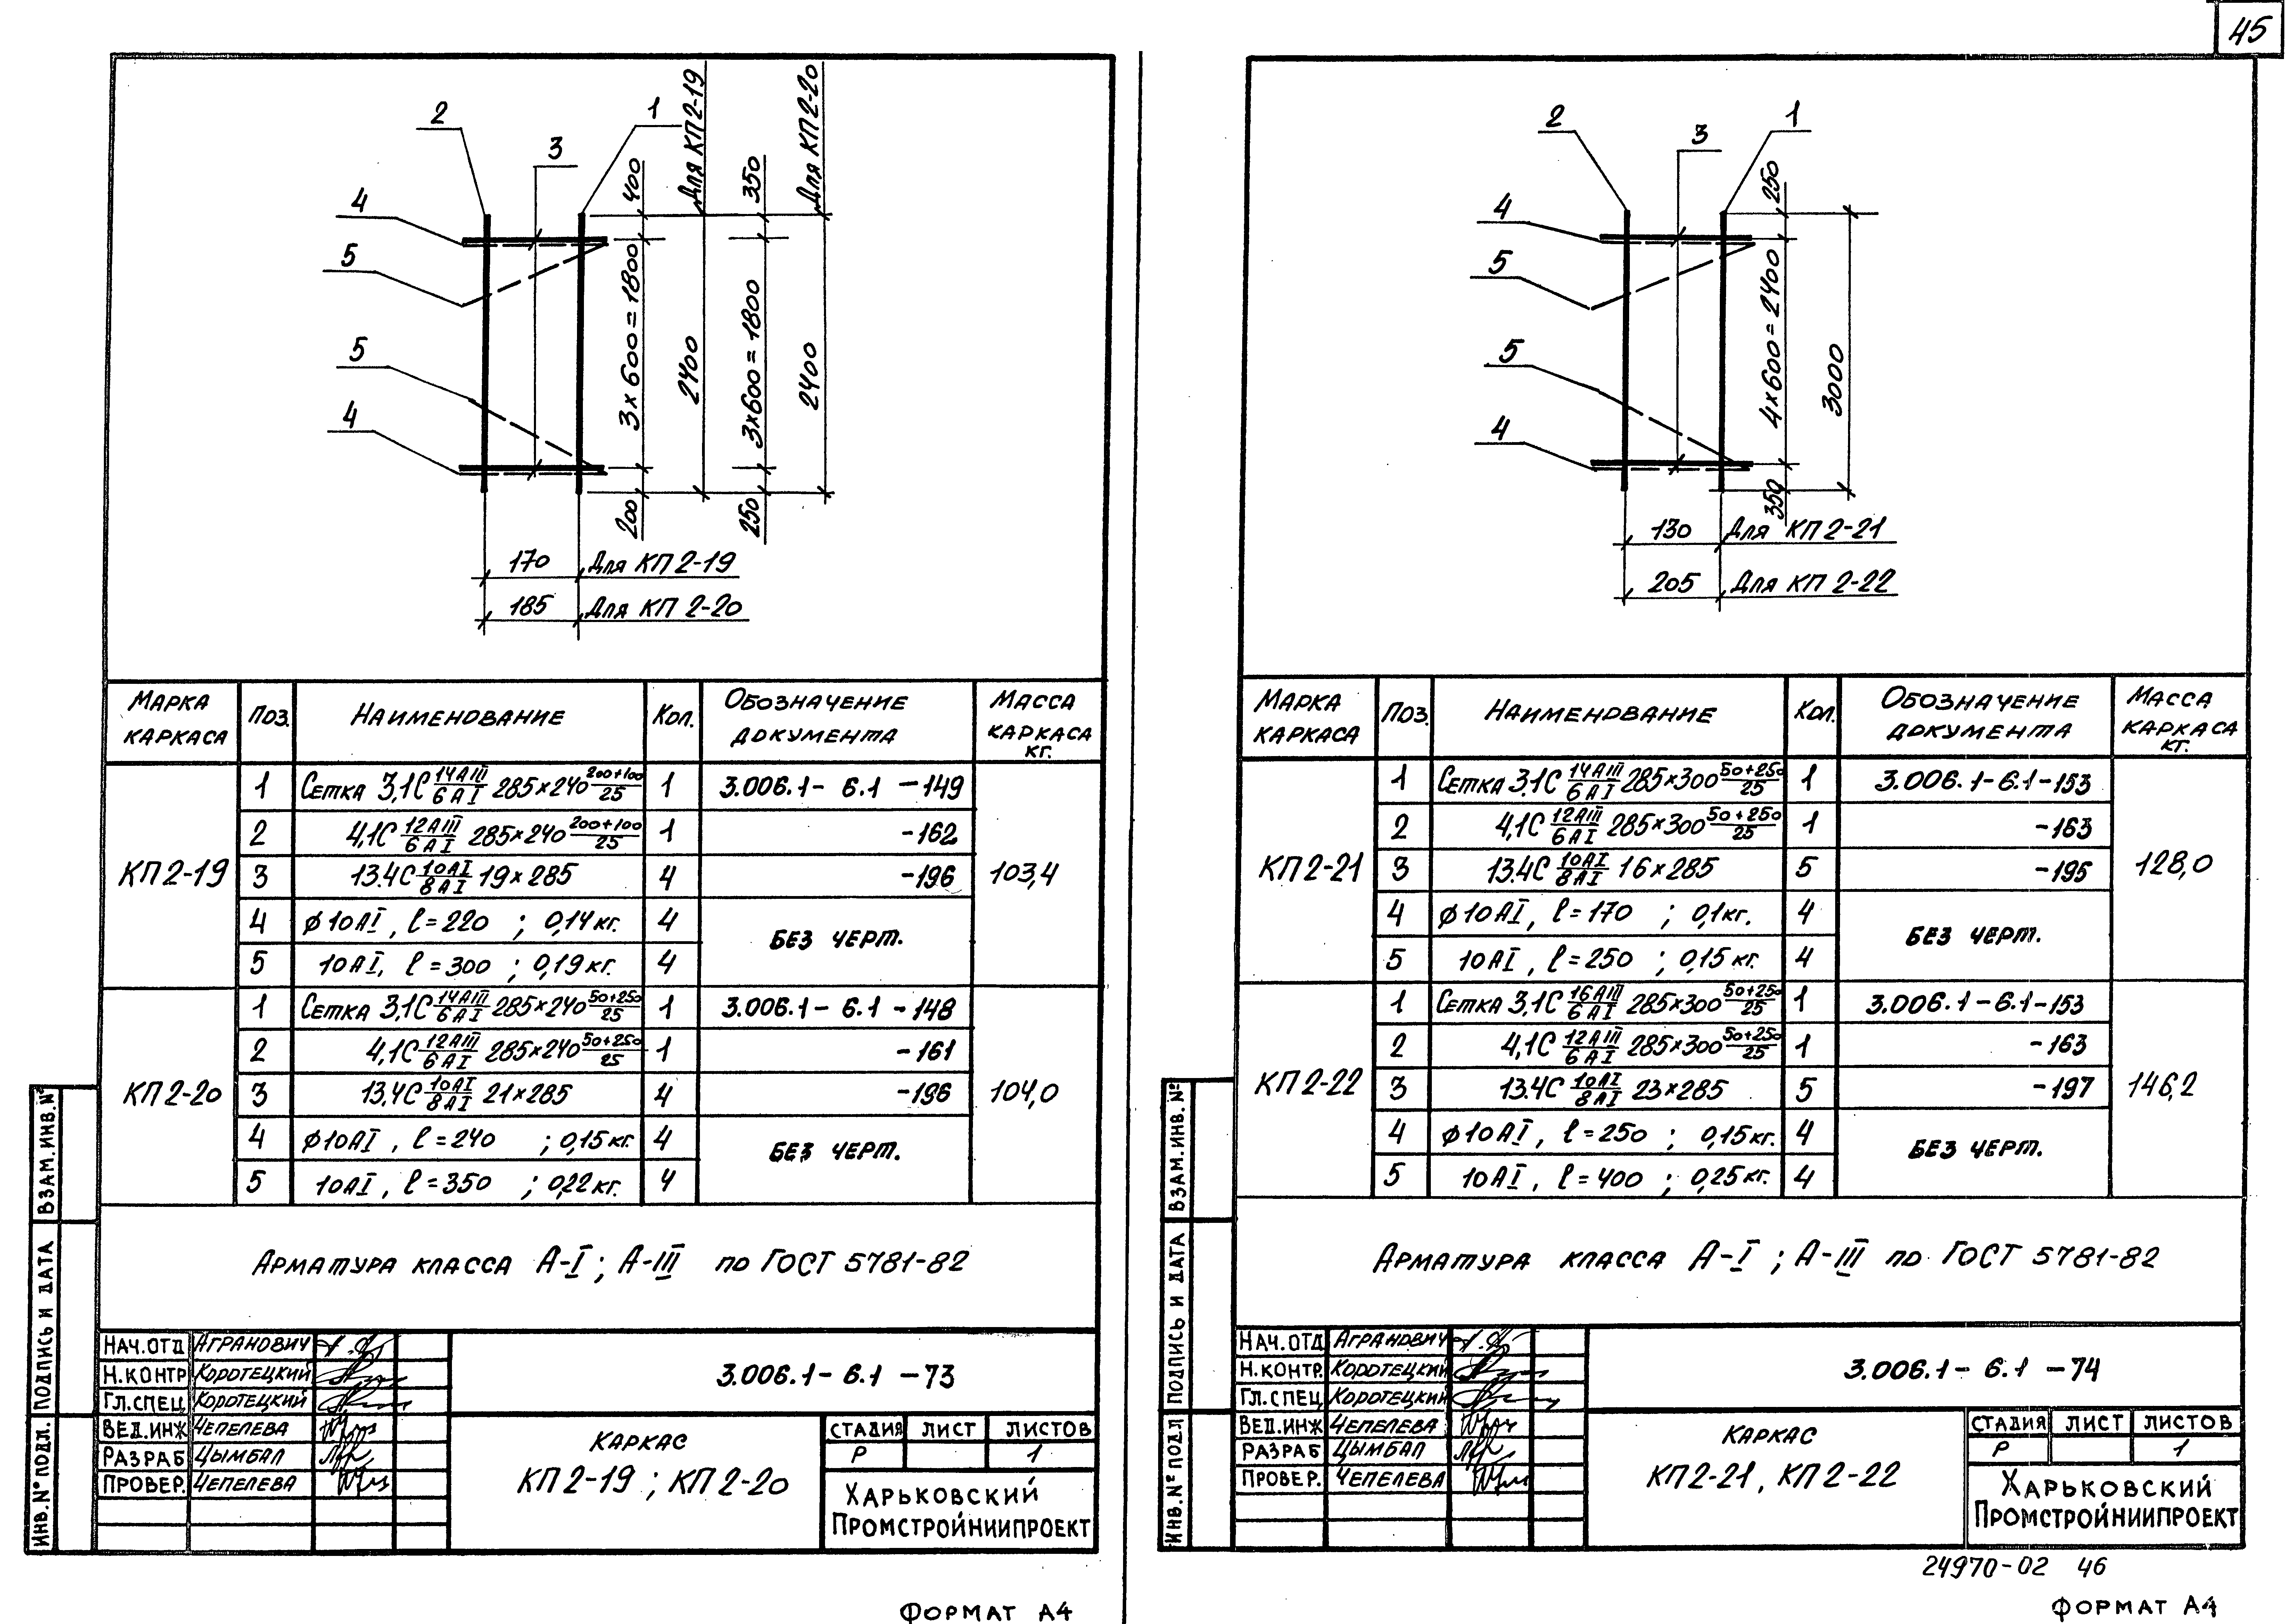 45
2
1
3
4
5
5
4
400
3×600=1800
200
Для КП2-19
2400
350
3×600=1800
250
Для КП2-20
2400
170 Для КП2-19
185 Для КП2-20
Марка каркаса | Поз. | Наименование | Кол. | Обозначение документа | Масса каркаса кг.
КП2-19 | 1 | Сетка 3,1С 14АIII/6АI 285×240 200+100/25 | 1 | 3.006.1-6.1-149 | 103,4
2 | 4,1С 12АIII/6АI 285×240 200+100/25 | 1 | -162
3 | 13.4С 10АI/8АI 19×285 | 4 | -196
4 | ϕ10АI, ℓ=220 ; 0,14кг. | 4 | Без черт.
5 | 10АI, ℓ=300 ; 0,19кг. | 4
КП2-20 | 1 | Сетка 3,1С 14АIII/6АI 285×240 50+250/25 | 1 | 3.006.1-6.1-148 | 104,0
2 | 4,1С 12АIII/6АI 285×240 50+250/25 | 1 | -161
3 | 13.4С 10АI/8АI 21×285 | 4 | -196
4 | ϕ10АI, ℓ=240 ; 0,15кг. | 4 | Без черт.
5 | 10АI, ℓ=350 ; 0,22кг. | 4
Арматура класса А-I; А-III по ГОСТ 5781-82
Нач.отд Агранович
Н.контр Коротецкий
Гл.спец. Коротецкий
Вед.инж Чепелева
Разраб Цымбал
Провер. Чепелева
3.006.1-6.1-73
Каркас
КП2-19; КП2-20
Стадия Лист Листов
Р 1
Харьковский
Промстройниипроект
Инв.№ подл. Подпись и дата Взам.инв.№
Формат А4
2
1
3
4
5
5
4
250
4×600=2400
350
3000
130 Для КП2-21
205 Для КП2-22
Марка каркаса | Поз. | Наименование | Кол. | Обозначение документа | Масса каркаса кг.
КП2-21 | 1 | Сетка 3,1С 14АIII/6АI 285×300 50+250/25 | 1 | 3.006.1-6.1-153 | 128,0
2 | 4,1С 12АIII/6АI 285×300 50+250/25 | 1 | -163
3 | 13.4С 10АI/8АI 16×285 | 5 | -195
4 | ϕ10АI, ℓ=170 ; 0,1кг. | 4 | Без черт.
5 | 10АI, ℓ=250 ; 0,15кг. | 4
КП2-22 | 1 | Сетка 3,1С 16АIII/6АI 285×300 50+250/25 | 1 | 3.006.1-6.1-153 | 146,2
2 | 4,1С 12АIII/6АI 285×300 50+250/25 | 1 | -163
3 | 13.4С 10АI/8АI 23×285 | 5 | -197
4 | ϕ10АI, ℓ=250 ; 0,15кг. | 4 | Без черт.
5 | 10АI, ℓ=400 ; 0,25кг. | 4
Арматура класса А-I; А-III по ГОСТ 5781-82
Нач.отд Агранович
Н.контр Коротецкий
Гл.спец. Коротецкий
Вед.инж Чепелева
Разраб Цымбал
Провер. Чепелева
3.006.1-6.1-74
Каркас
КП2-21, КП2-22
Стадия Лист Листов
Р 1
Харьковский
Промстройниипроект
Инв.№ подл Подпись и дата Взам.инв.№
24970-02 46
Формат А4